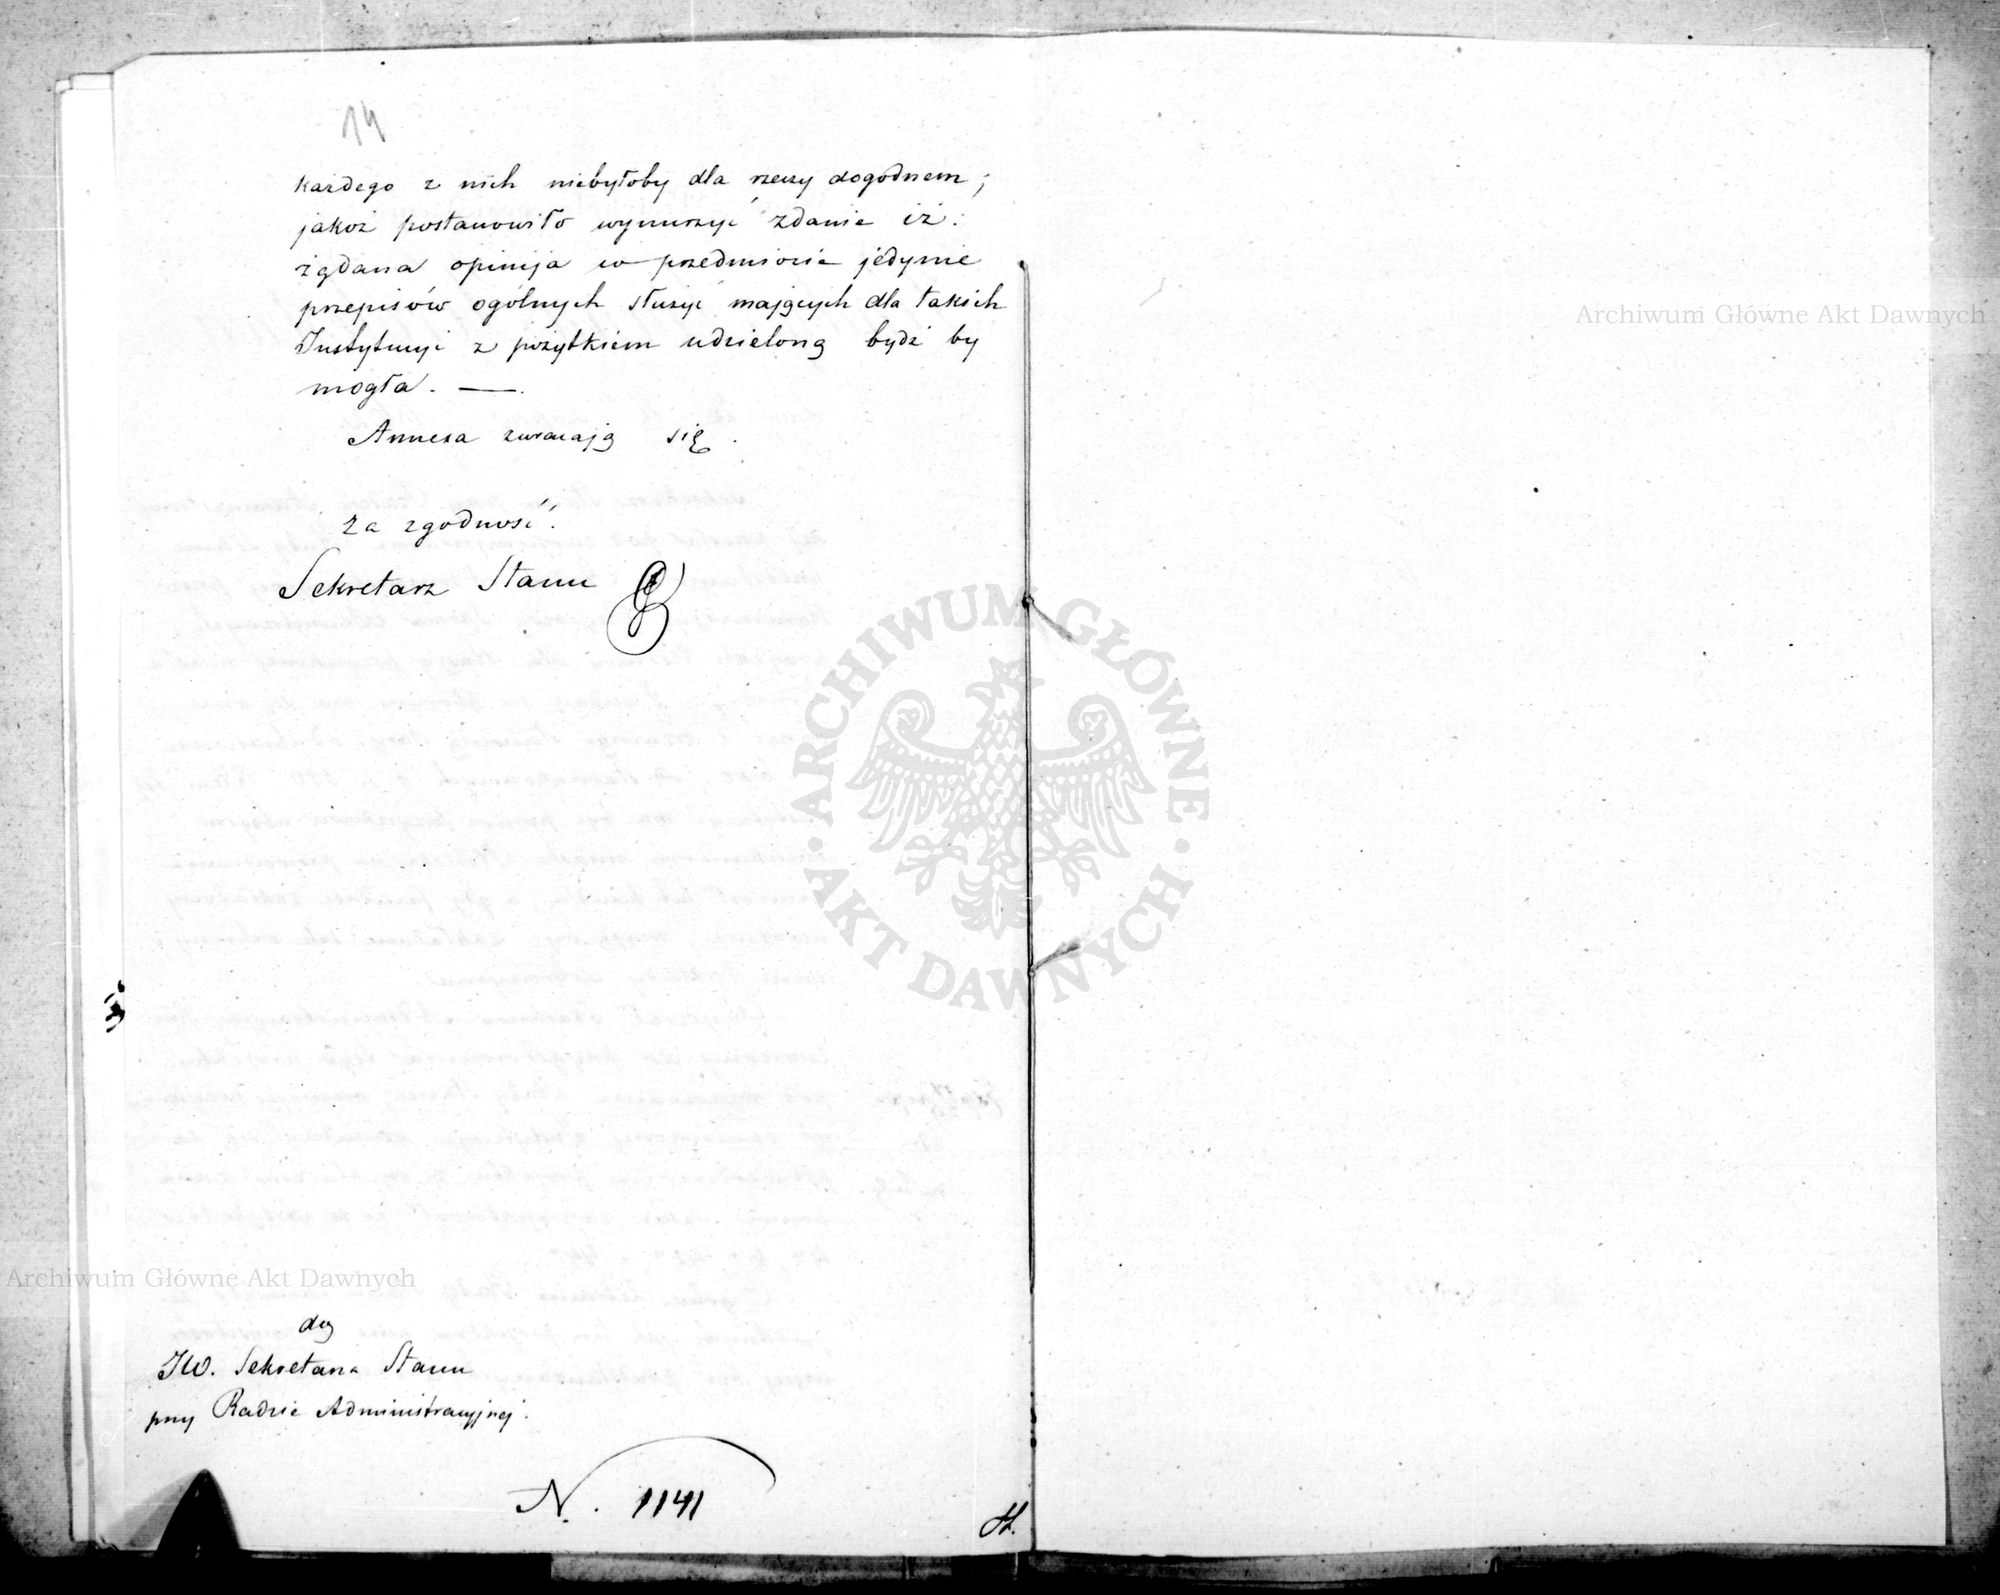 14
każdego z nich niebyłoby dla rzeczy dogodnem;
jakoż postanowiło wynurzyć zdanie iż:
żądana opinija w przedmiocie jedynie
przepisów ogólnych służyć mających dla takich
Instytucyi z pożytkiem udzieloną bydź by
mogła. —
Annexa zwracają się.
Za zgodność.
Sekretarz Stanu
do
JW. Sekretarza Stanu
przy Radzie Administracyjnej.
N. 1141
Archiwum Główne Akt Dawnych
Archiwum Główne Akt Dawnych
ARCHIWUM GŁÓWNE · AKT DAWNYCH ·